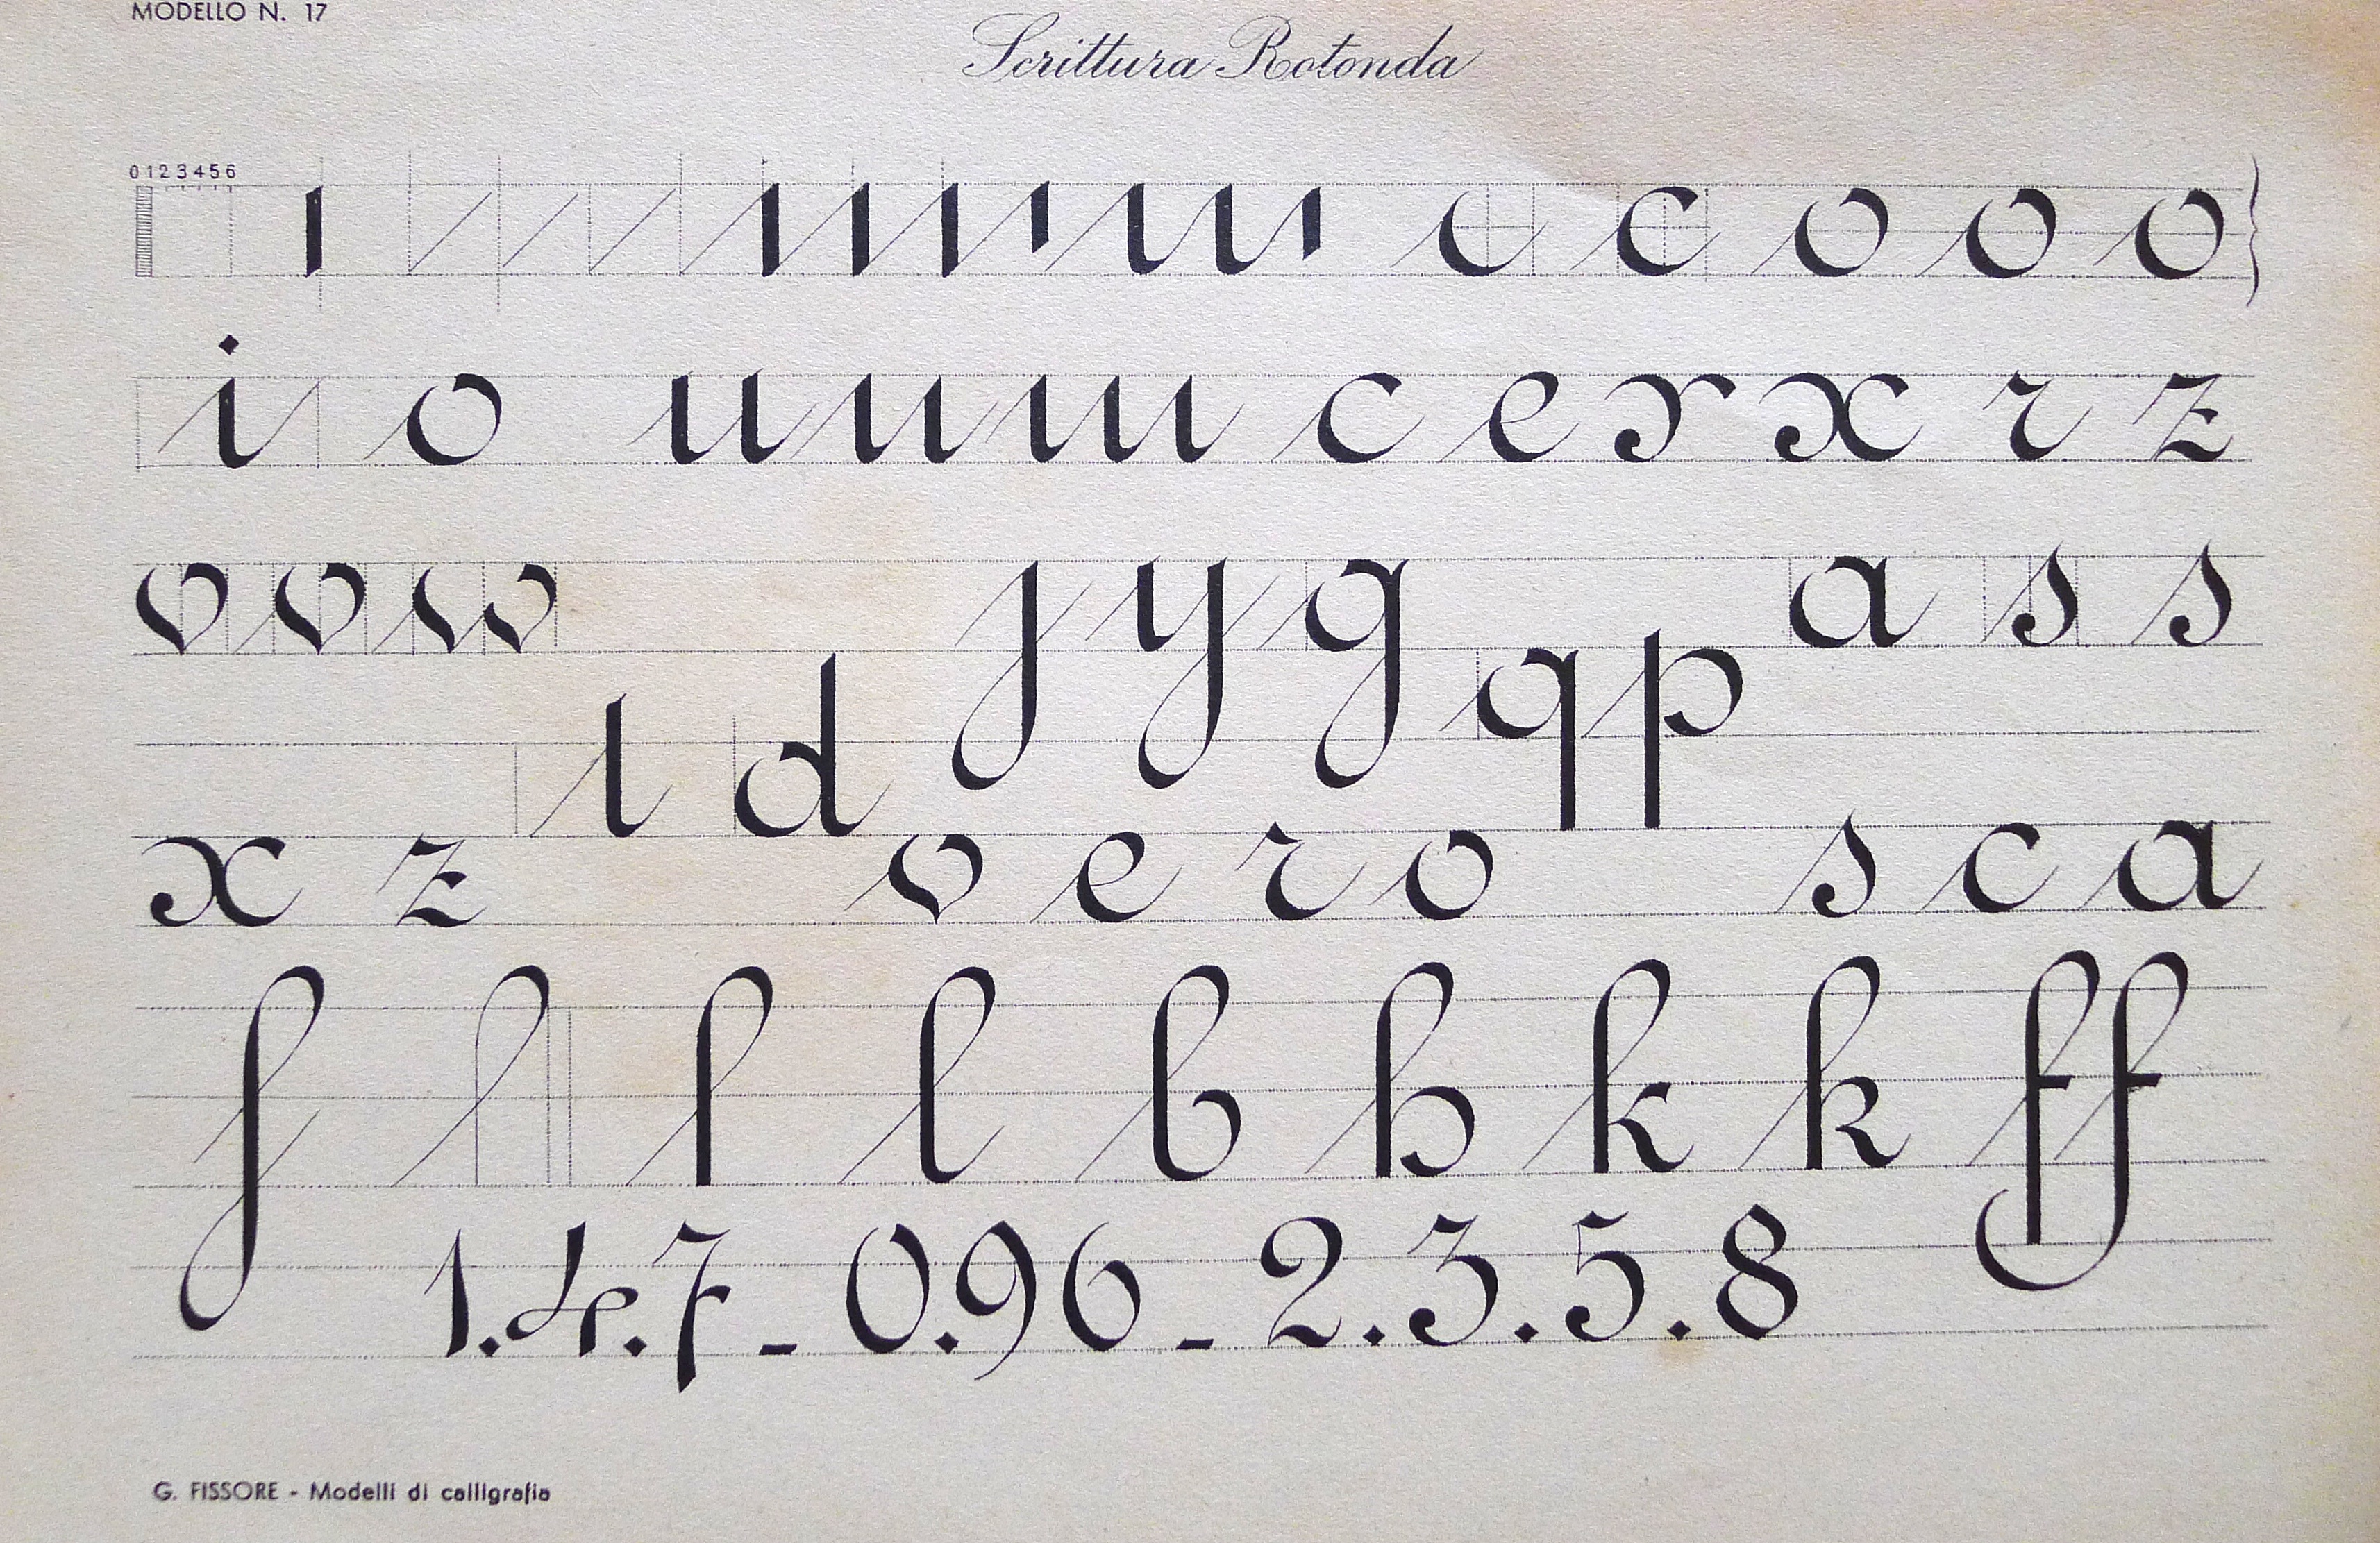 MODELLO N. 17
Scrittura Rotonda
0 1 2 3 4 5 6
c c o o o
i o u n m c e r x r z
v v w j y g a s s
t d q p
x z v e r o s c a
f l l b h k k ff
1.4.7 - 0.96 - 2.3.5.8
G. FISSORE - Modelli di calligrafia